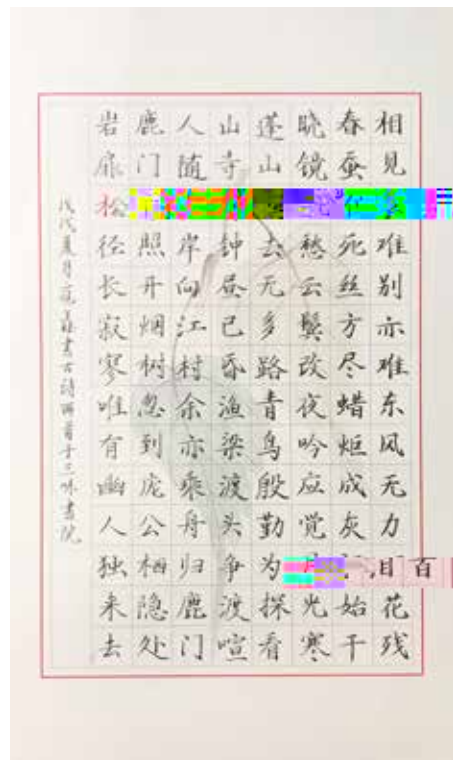 相见难别亦难东风无力百花残
春蚕死丝方尽蜡炬成灰始干
晓镜愁云鬓改夜吟应觉光寒
蓬山去无多路青鸟殷勤为探看
山寺钟昼已昏渔梁渡头争渡喧
人随岸向江村余亦乘舟归鹿门
鹿门照开烟树忽到庞公栖隐处
岩扉松径长寂寥唯有幽人独来去
戊戌夏月范书古诗两首于三味书院